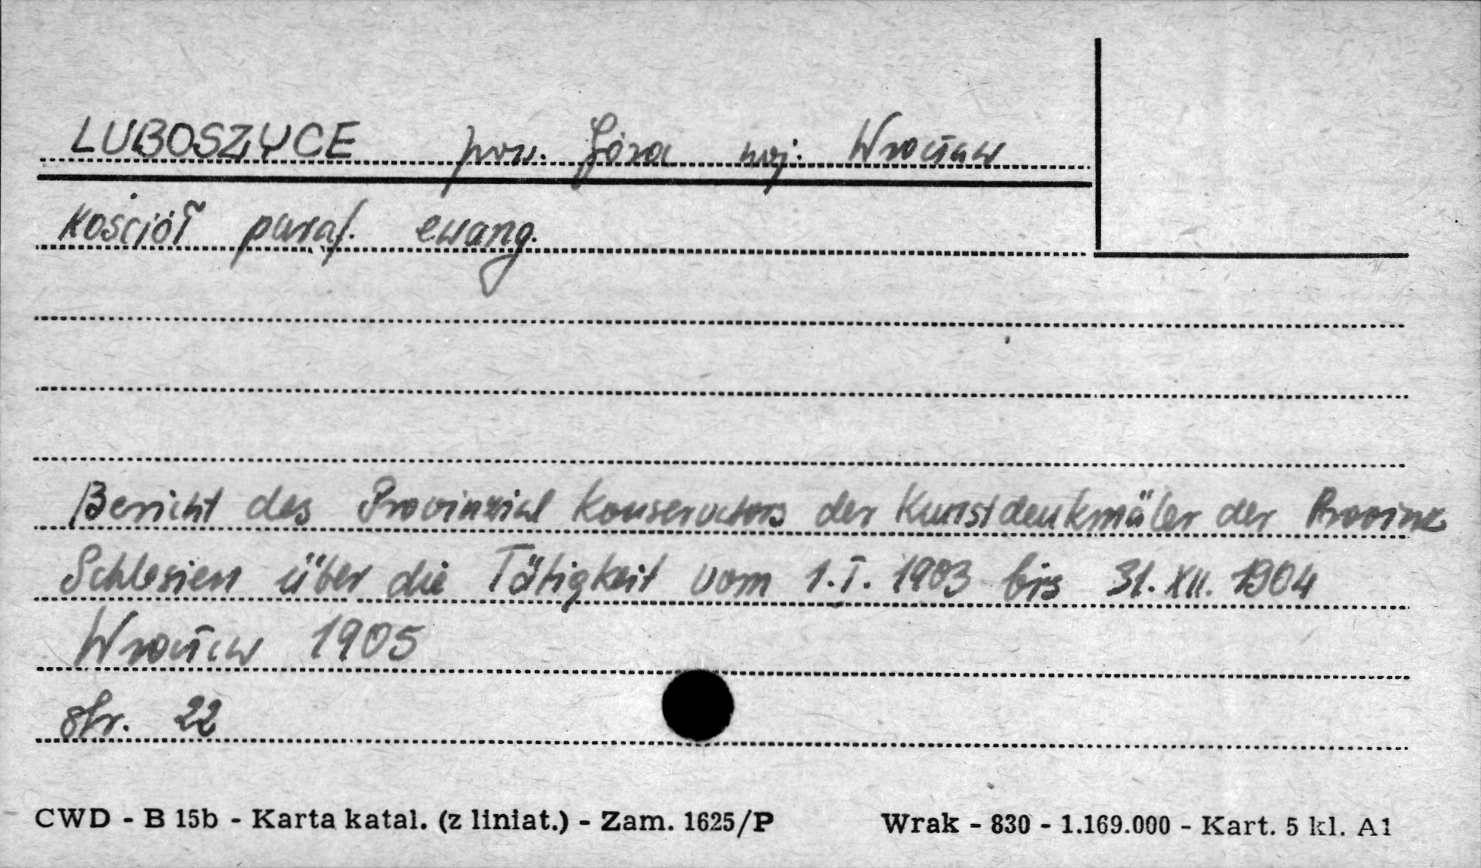 LUBOSZYCE pow. Góra woj. Wrocław
kościół paraf. ewang.
Bericht des Provinzial Konservators der Kunstdenkmäler der Provinz
Schlesien über die Tätigkeit vom 1.I.1903 bis 31.XII.1904
Wrocław 1905
str. 22
CWD - B 15b - Karta katal. (z liniat.) - Zam. 1625/P Wrak - 830 - 1.169.000 - Kart. 5 kl. A1